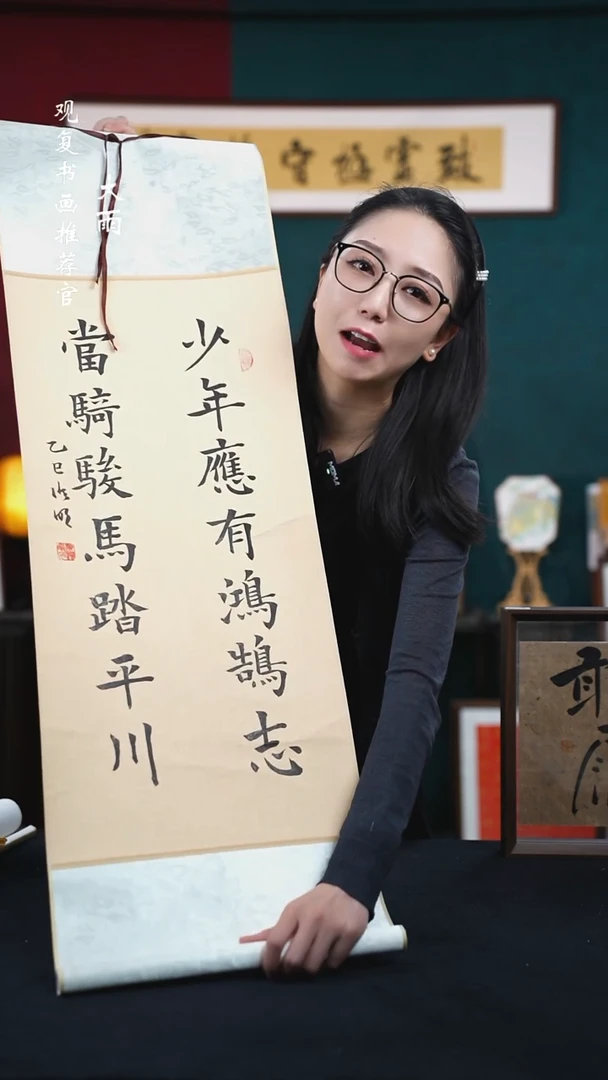 观复书画推荐官
大雨
致虚極守
少年應有鴻鵠志
當騎駿馬踏平川
乙巳